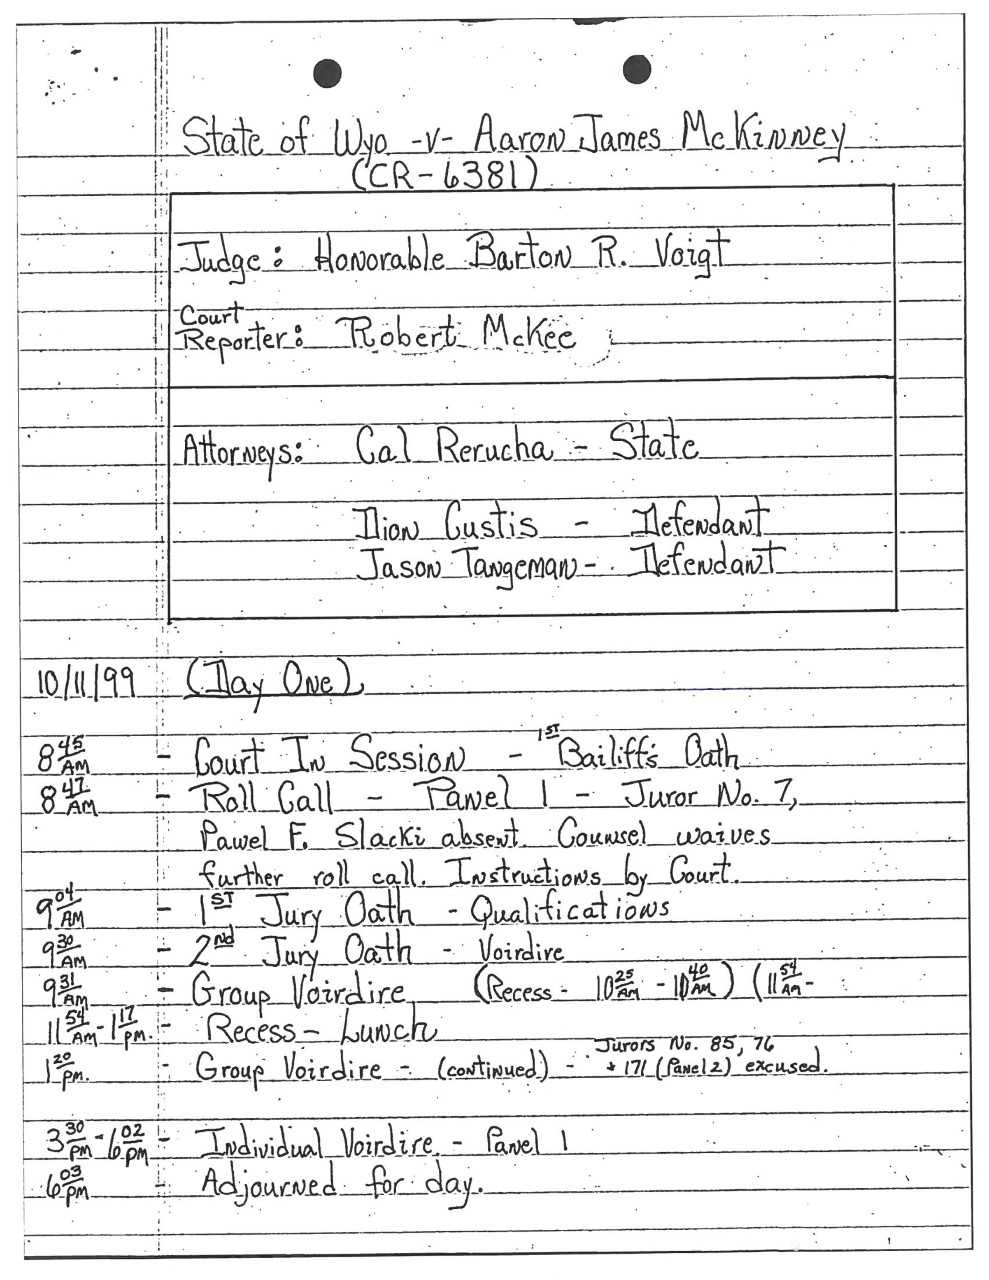 State of Wyo -v- Aaron James McKinney
(CR-6381)
Judge: Honorable Barton R. Voigt
Court
Reporter: Robert McKee
Attorneys: Cal Rerucha - State
Dion Custis - Defendant
Jason Tangeman - Defendant
10/11/99 (Day One)
8 45 AM - Court In Session - 1ST Bailiff's Oath
8 47 AM - Roll Call - Panel 1 - Juror No. 7,
Pawel F. Slacki absent. Counsel waives
further roll call. Instructions by Court.
9 04 AM - 1ST Jury Oath - Qualifications
9 30 AM - 2nd Jury Oath - Voirdire
9 31 AM - Group Voirdire (Recess - 10 25 AM - 10 40 AM) (11 54 AM -
11 54 AM - 1 17 pm. - Recess - Lunch
1 20 pm. - Group Voirdire - (continued) - Jurors No. 85, 76
+ 171 (Panel 2) excused.
3 30 pm - 6 02 pm - Individual Voirdire - Panel 1
6 03 pm - Adjourned for day.